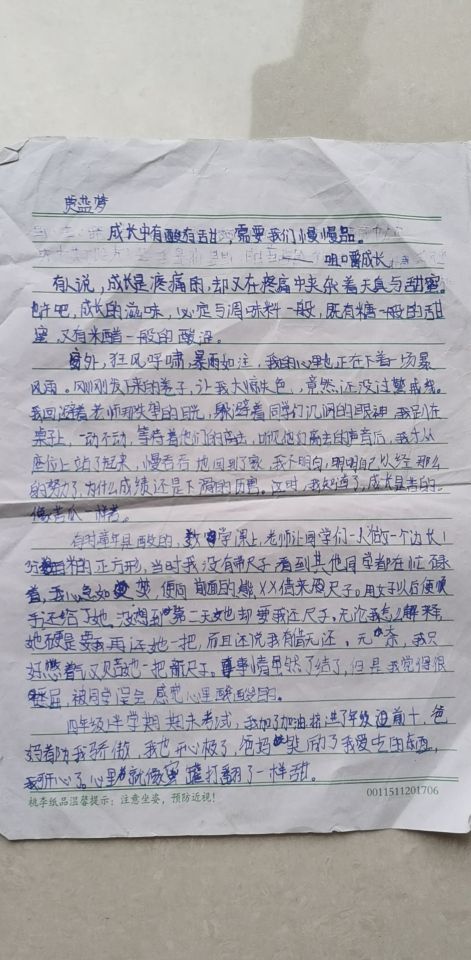 成长中有酸有甜，需要我们慢慢品。
咀嚼成长，
有人说，成长是疼痛的，却又在疼痛中夹杂着天真与甜蜜。
也许吧，成长的滋味，必定与调味料一般，既有糖一般的甜
蜜，又有米醋一般的酸涩。
窗外，狂风呼啸，暴雨如注，我的心里也正在下着一场暴
风雨。刚刚发下来的卷子，让我大惊失色，竟然还没过警戒线。
我回避着老师的目光，躲避着同学们的眼神，我趴在
桌子上，一动不动，等待着他们的离去，听见他们离去的声音后，我才从
座位上站了起来，慢吞吞地回到了家，我不明白，明明自己以经那么
的努力了，为什么成绩还是下滑的厉害。这时，我知道了，成长是苦的，
像苦瓜一样苦。
有时童年是酸的，数学课上，老师让同学们一人做一个边长1
的正方形，当时我没有带尺子，看到其他同学都在忙碌
着，我心急如焚，便向前面的XX借来尺子。用好了以后便
还给了她，没想到第二天她却要我还尺子，无论我怎么解释，
她硬是要我再还她一把，而且还说我有借无还，无奈，我只
好憋着气又赔她一把新尺子。事情虽然了结了，但是我觉得很
委屈，被同学误会，感觉心里酸酸的。
四年级上学期期末考试，我加了加油，挤进了年级前十，爸
妈都为我骄傲，我也开心极了，爸妈奖励了我爱吃的东西，
我开心了，心里就像蜜罐打翻了一样甜。
桃李纸品温馨提示：注意坐姿，预防近视！
0011511201706